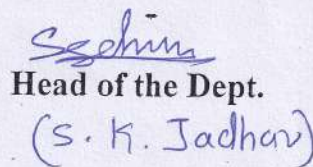 Head of the Dept.
(S. K. Jadhav)